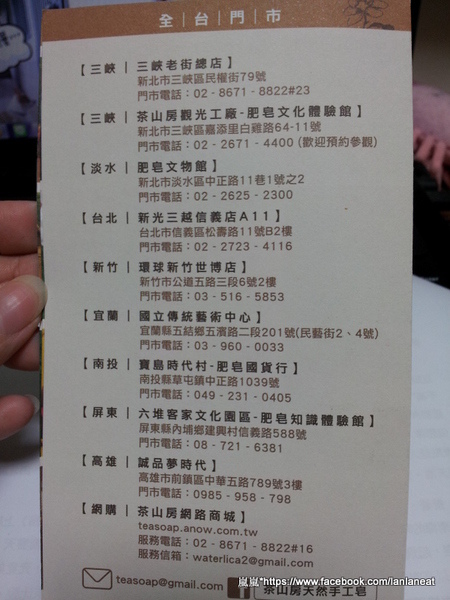 全台門市
【三峽｜三峽老街總店】
新北市三峽區民權街79號
門市電話：02-8671-8822#23
【三峽｜茶山房觀光工廠-肥皂文化體驗館】
新北市三峽區嘉添里白雞路64-11號
門市電話：02-2671-4400 (歡迎預約參觀)
【淡水｜肥皂文物館】
新北市淡水區中正路11巷1號之2
門市電話：02-2625-2300
【台北｜新光三越信義店A11】
台北市信義區松壽路11號B2樓
門市電話：02-2723-4116
【新竹｜環球新竹世博店】
新竹市公道五路三段6號2樓
門市電話：03-516-5853
【宜蘭｜國立傳統藝術中心】
宜蘭縣五結鄉五濱路二段201號(民藝街2、4號)
門市電話：03-960-0033
【南投｜寶島時代村-肥皂國貨行】
南投縣草屯鎮中正路1039號
門市電話：049-231-0405
【屏東｜六堆客家文化園區-肥皂知識體驗館】
屏東縣內埔鄉建興村信義路588號
門市電話：08-721-6381
【高雄｜誠品夢時代】
高雄市前鎮區中華五路789號3樓
門市電話：0985-958-798
【網購｜茶山房網路商城】
teasoap.anow.com.tw
服務電話：02-8671-8822#16
服務信箱：waterlica2@gmail.com
teasoap@gmail.com f 茶山房天然手工皂
嵐嵐*https://www.facebook.com/lanlaneat